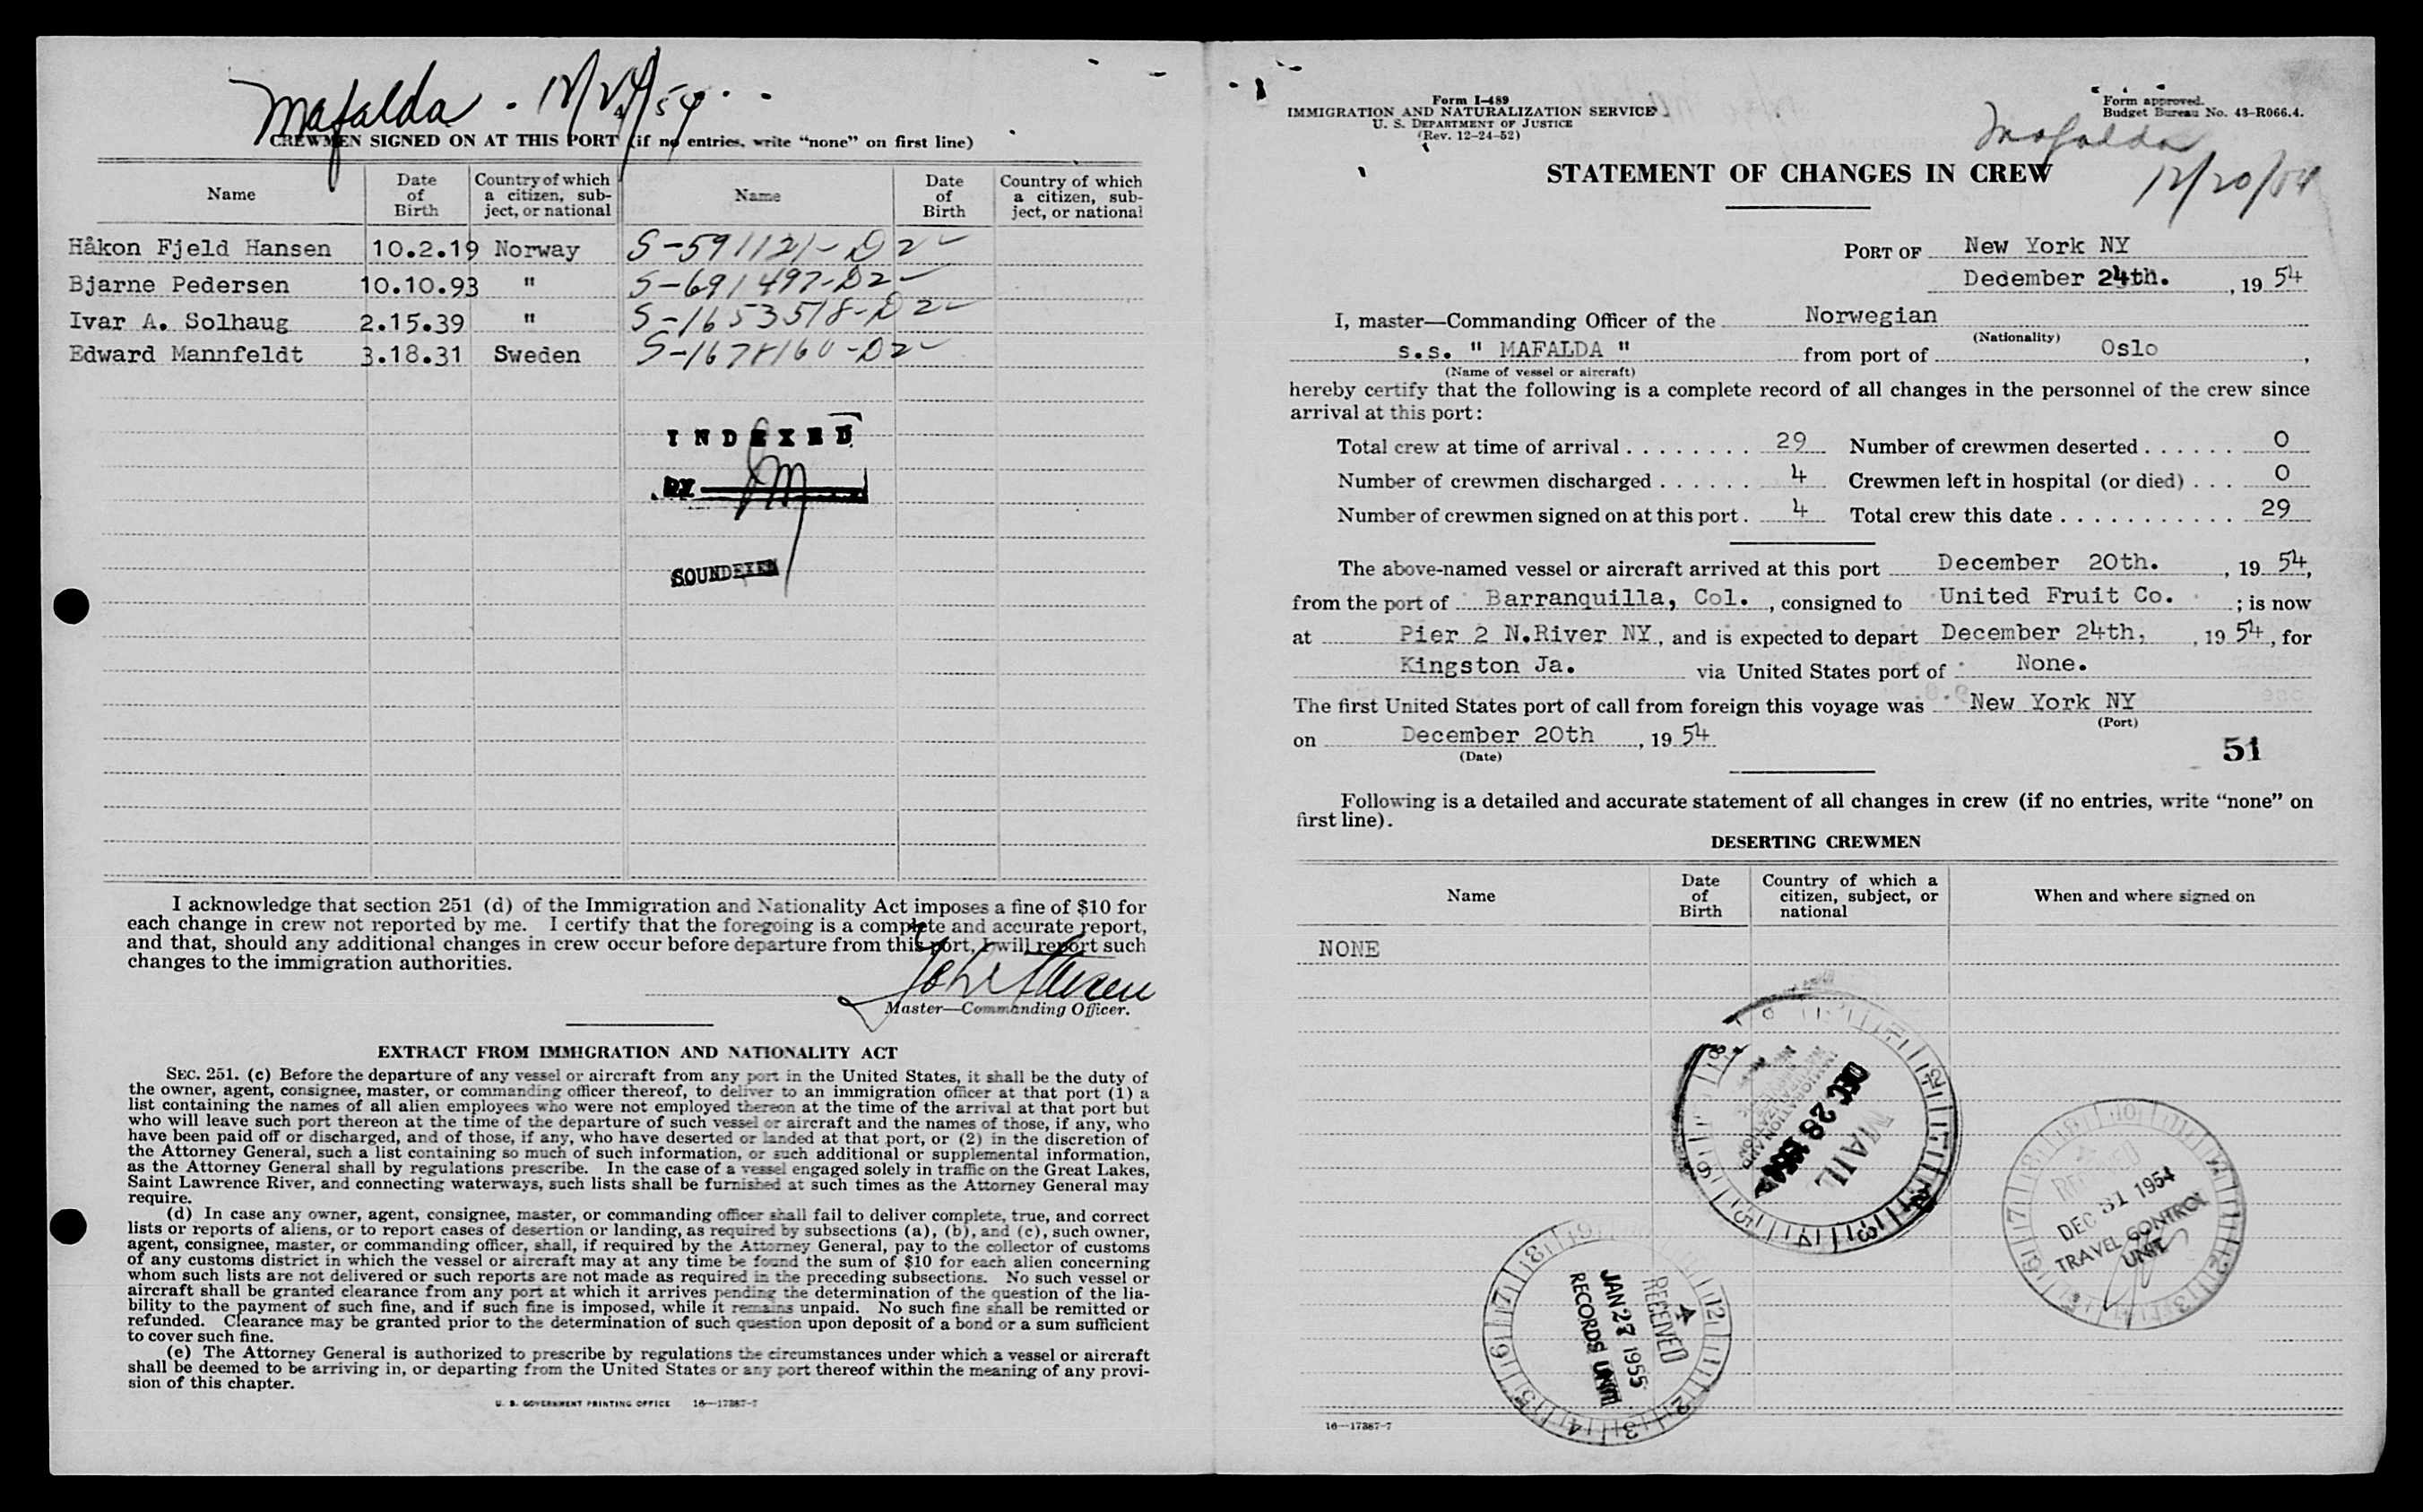 Mafalda - 12/24/54
CREWMEN SIGNED ON AT THIS PORT (if no entries, write “none” on first line)
Name Date of Birth Country of which a citizen, subject, or national Name Date of Birth Country of which a citizen, subject, or national
Håkon Fjeld Hansen 10.2.19 Norway S-591121-D2
Bjarne Pedersen 10.10.93 " S-691497-D2
Ivar A. Solhaug 2.15.39 " S-1653518-D2
Edward Mannfeldt 3.18.31 Sweden S-1678160-D2
INDEXED
BY
SOUNDEXED
I acknowledge that section 251 (d) of the Immigration and Nationality Act imposes a fine of $10 for
each change in crew not reported by me. I certify that the foregoing is a complete and accurate report,
and that, should any additional changes in crew occur before departure from this port, I will report such
changes to the immigration authorities.
Master—Commanding Officer.
EXTRACT FROM IMMIGRATION AND NATIONALITY ACT
SEC. 251. (c) Before the departure of any vessel or aircraft from any port in the United States, it shall be the duty of
the owner, agent, consignee, master, or commanding officer thereof, to deliver to an immigration officer at that port (1) a
list containing the names of all alien employees who were not employed thereon at the time of the arrival at that port but
who will leave such port thereon at the time of the departure of such vessel or aircraft and the names of those, if any, who
have been paid off or discharged, and of those, if any, who have deserted or landed at that port, or (2) in the discretion of
the Attorney General, such a list containing so much of such information, or such additional or supplemental information,
as the Attorney General shall by regulations prescribe. In the case of a vessel engaged solely in traffic on the Great Lakes,
Saint Lawrence River, and connecting waterways, such lists shall be furnished at such times as the Attorney General may
require.
(d) In case any owner, agent, consignee, master, or commanding officer shall fail to deliver complete, true, and correct
lists or reports of aliens, or to report cases of desertion or landing, as required by subsections (a), (b), and (c), such owner,
agent, consignee, master, or commanding officer, shall, if required by the Attorney General, pay to the collector of customs
of any customs district in which the vessel or aircraft may at any time be found the sum of $10 for each alien concerning
whom such lists are not delivered or such reports are not made as required in the preceding subsections. No such vessel or
aircraft shall be granted clearance from any port at which it arrives pending the determination of the question of the lia-
bility to the payment of such fine, and if such fine is imposed, while it remains unpaid. No such fine shall be remitted or
refunded. Clearance may be granted prior to the determination of such question upon deposit of a bond or a sum sufficient
to cover such fine.
(e) The Attorney General is authorized to prescribe by regulations the circumstances under which a vessel or aircraft
shall be deemed to be arriving in, or departing from the United States or any port thereof within the meaning of any provi-
sion of this chapter.
U. S. GOVERNMENT PRINTING OFFICE 16—17387-7
Form I-489
IMMIGRATION AND NATURALIZATION SERVICE
U. S. DEPARTMENT OF JUSTICE
(Rev. 12-24-52)
Form approved.
Budget Bureau No. 43-R066.4.
Mafalda
12/20/54
STATEMENT OF CHANGES IN CREW
PORT OF New York NY
Dedember 24th. , 19 54
I, master—Commanding Officer of the Norwegian
(Nationality)
s.s. " MAFALDA " from port of Oslo ,
(Name of vessel or aircraft)
hereby certify that the following is a complete record of all changes in the personnel of the crew since
arrival at this port:
Total crew at time of arrival 29 Number of crewmen deserted 0
Number of crewmen discharged 4 Crewmen left in hospital (or died) 0
Number of crewmen signed on at this port 4 Total crew this date 29
The above-named vessel or aircraft arrived at this port December 20th. , 19 54,
from the port of Barranquilla, Col. , consigned to United Fruit Co. ; is now
at Pier 2 N.River NY , and is expected to depart December 24th, , 19 54, for
Kingston Ja. via United States port of None.
The first United States port of call from foreign this voyage was New York NY
(Port)
on December 20th , 19 54
(Date)
51
Following is a detailed and accurate statement of all changes in crew (if no entries, write “none” on
first line).
DESERTING CREWMEN
Name Date of Birth Country of which a citizen, subject, or national When and where signed on
NONE
DEC 28 1954
MAIL
RECEIVED
DEC 31 1954
TRAVEL CONTROL
UNIT
A
RECEIVED
JAN 27 1955
RECORDS UNIT
16—17387-7